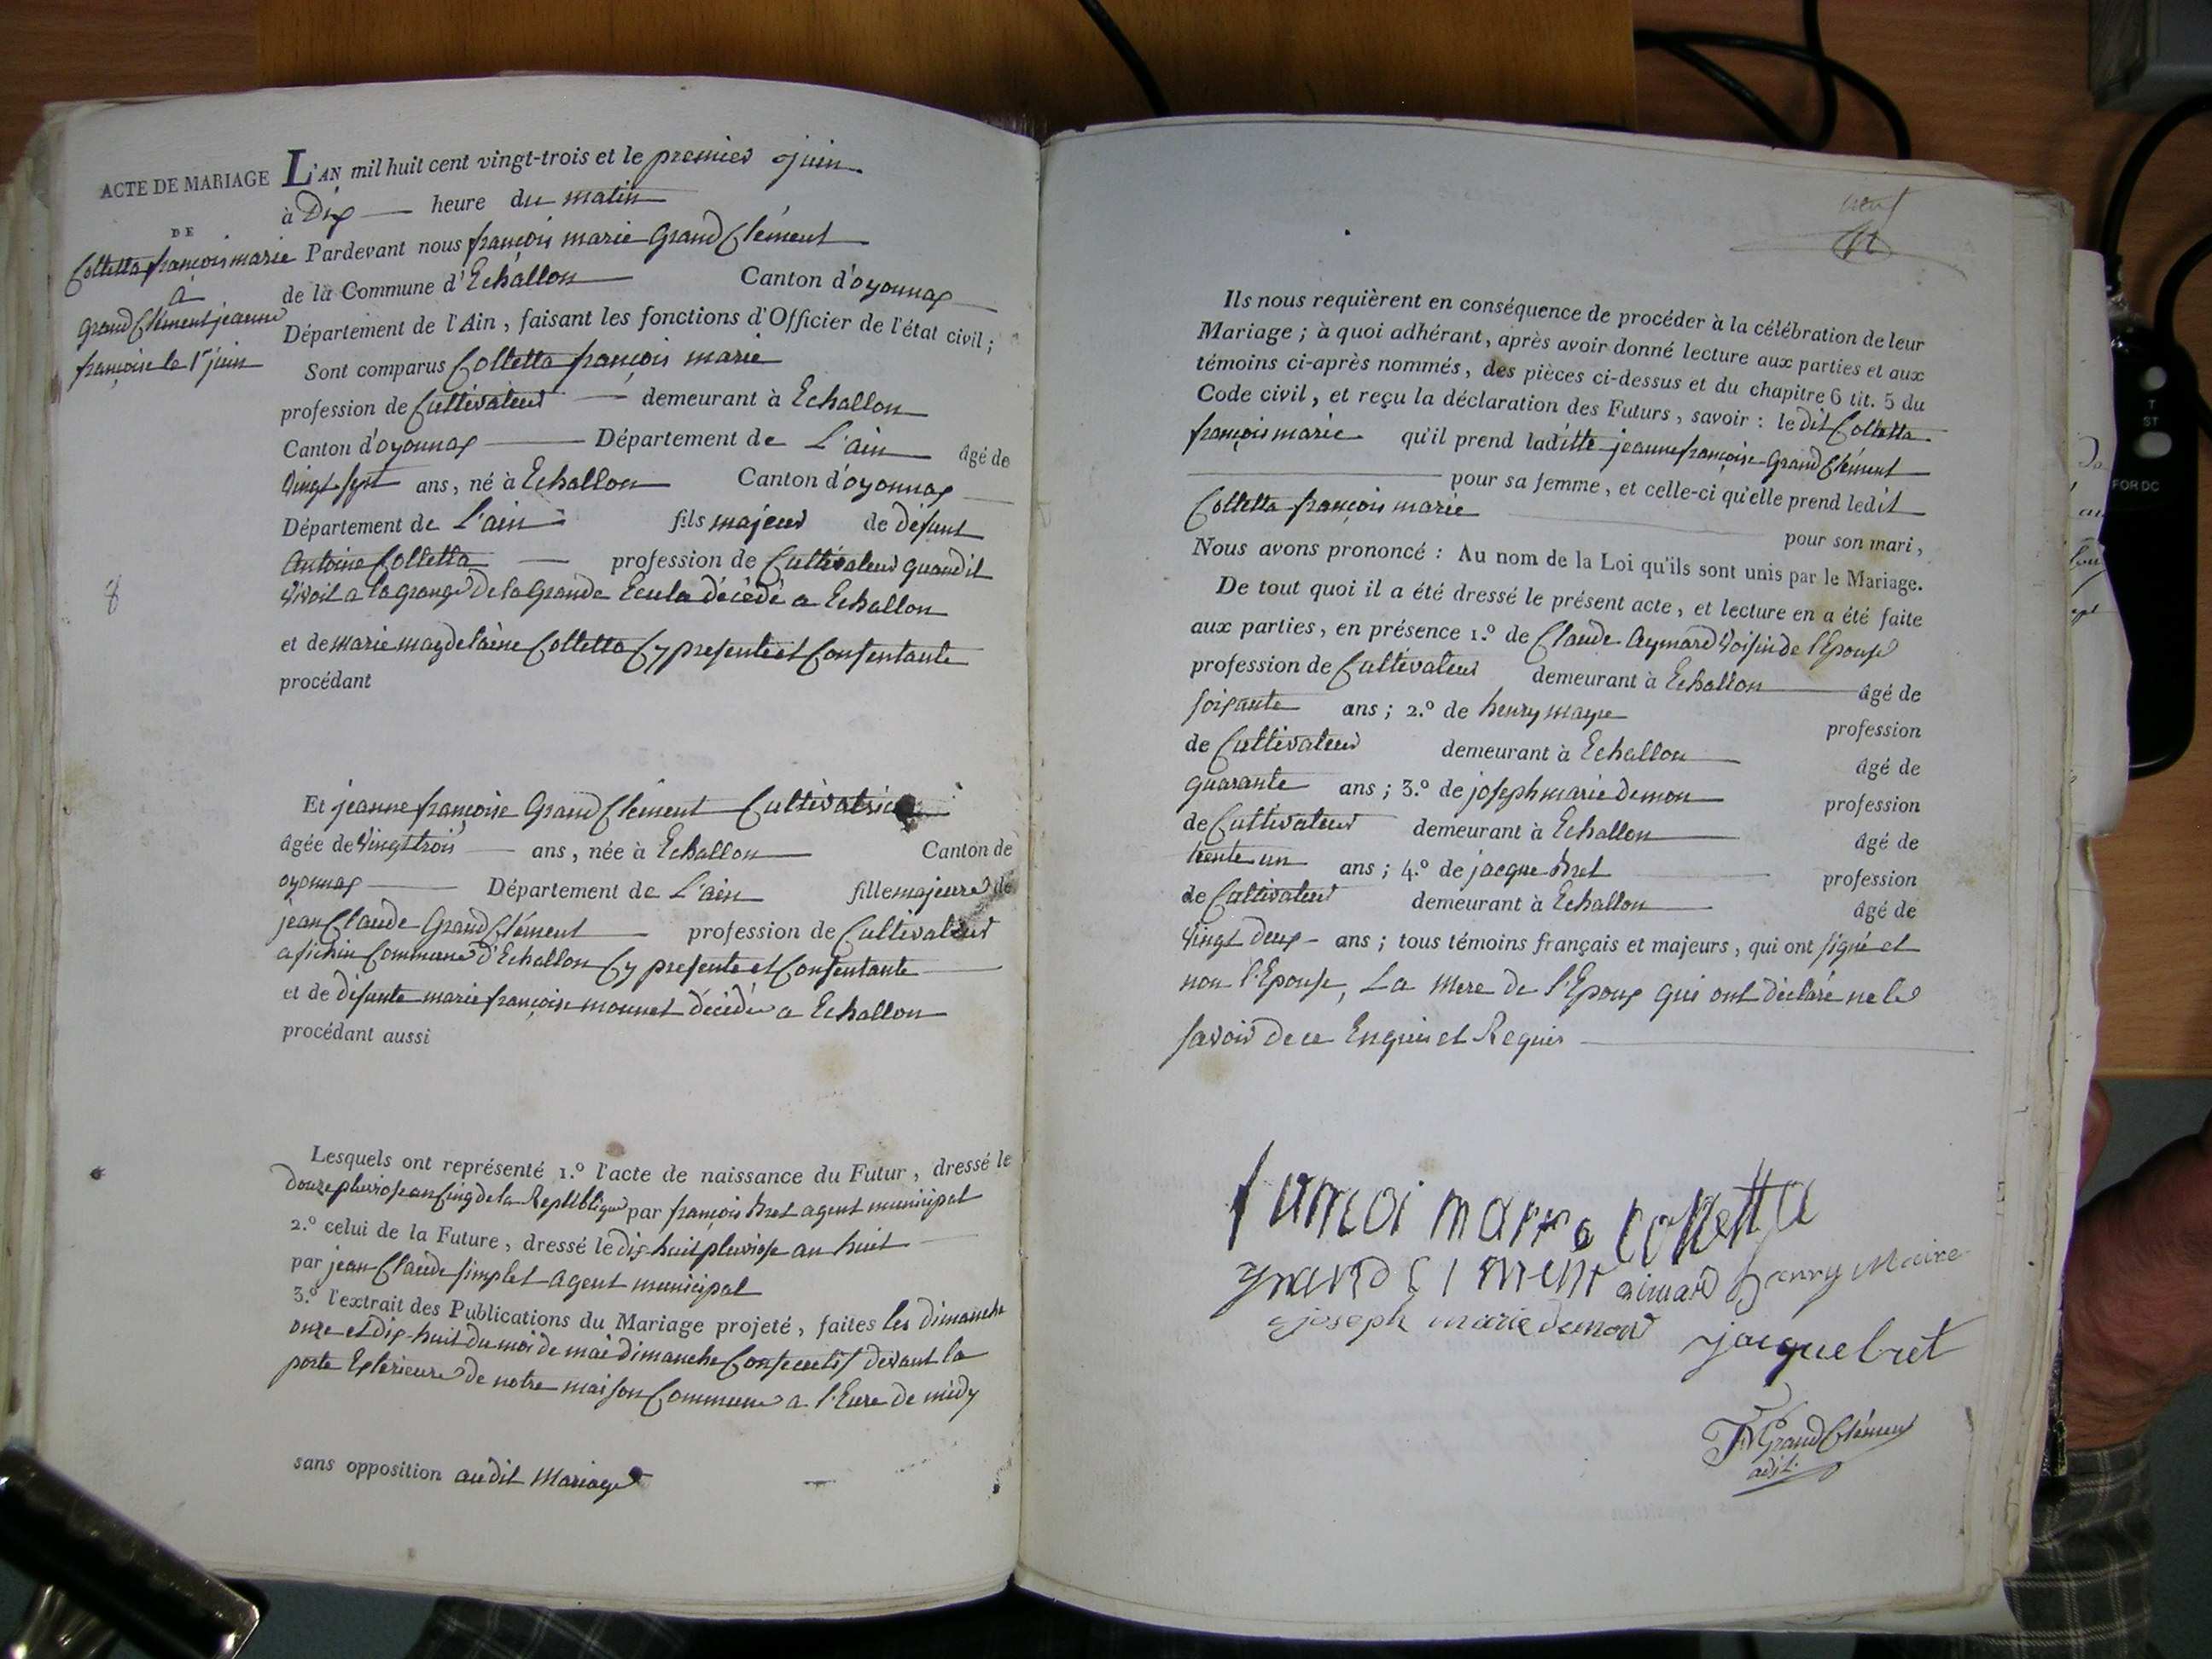 ACTE DE MARIAGE
DE
Colletta françois marie
à
Grand Clément jeanne
françoise le 1er juin
8
L'AN mil huit cent vingt-trois et le premier juin
à Dix heure du matin
Pardevant nous françois marie Grand Clément
de la Commune d'Echallon Canton d'oyonnax
Département de l'Ain, faisant les fonctions d'Officier de l'état civil;
Sont comparus Colletta françois marie
profession de Cultivateur demeurant à Echallon
Canton d'oyonnax Département de L'ain âgé de
vingt sept ans, né à Echallon Canton d'oyonnax
Département de L'ain fils majeur de défunt
Antoine Colletta profession de Cultivateur quand il
vivoit a la grange de la Grande Ecula décédé a Echallon
et de marie magdelaine Colletta Cy presente et Consentante
procédant
Et jeanne françoise Grand Clément Cultivatrice
âgée de vingt trois ans, née à Echallon Canton de
oyonnax Département de L'ain fille majeure de
jean Claude Grand Clément profession de Cultivateur
a Commune d'Echallon Cy presente et Consentante
et de défunte marie françoise monnet décédée a Echallon
procédant aussi
Lesquels ont représenté 1.º l'acte de naissance du Futur, dressé le
douze pluviose an Cinq de la Repbblique par françois Bret agent municipal
2.º celui de la Future, dressé le dix huit pluviose an huit
par jean Claude simplet agent municipal
3.º l'extrait des Publications du Mariage projeté, faites les dimanche
onze et dix-huit du moi de mai dimanche Consecutif devant la
porte Exterieure de notre maison Commune a l'Eure de midy
sans opposition audit Mariage
neuf
Ils nous requièrent en conséquence de procéder à la célébration de leur
Mariage; à quoi adhérant, après avoir donné lecture aux parties et aux
témoins ci-après nommés, des pièces ci-dessus et du chapitre 6 tit. 5 du
Code civil, et reçu la déclaration des Futurs, savoir: le dit Colletta
françois marie qu'il prend laditte jeanne françoise Grand Clément
pour sa femme, et celle-ci qu'elle prend ledit
Colletta françois marie
pour son mari,
Nous avons prononcé: Au nom de la Loi qu'ils sont unis par le Mariage.
De tout quoi il a été dressé le présent acte, et lecture en a été faite
aux parties, en présence 1.º de Claude Aymard Voisin de l'Epouse
profession de Cultivateur demeurant à Echallon âgé de
soixante ans; 2.º de henry mayre profession
de Cultivateur demeurant à Echallon âgé de
quarante ans; 3.º de joseph marie Demon profession
de Cultivateur demeurant à Echallon âgé de
trente un ans; 4.º de jacque Bret profession
de Cultivateur demeurant à Echallon âgé de
vingt deux ans; tous témoins français et majeurs, qui ont signé et
non l'Epouse, La mere de l'Epoux qui ont déclaré ne le
savoir de ce Enquis et Requis
fumoi marie colletta
grand clment aimard henry Maire
joseph marie demon jaquebret
FM Grand Clément
adjt.
T
ST
FOR DC